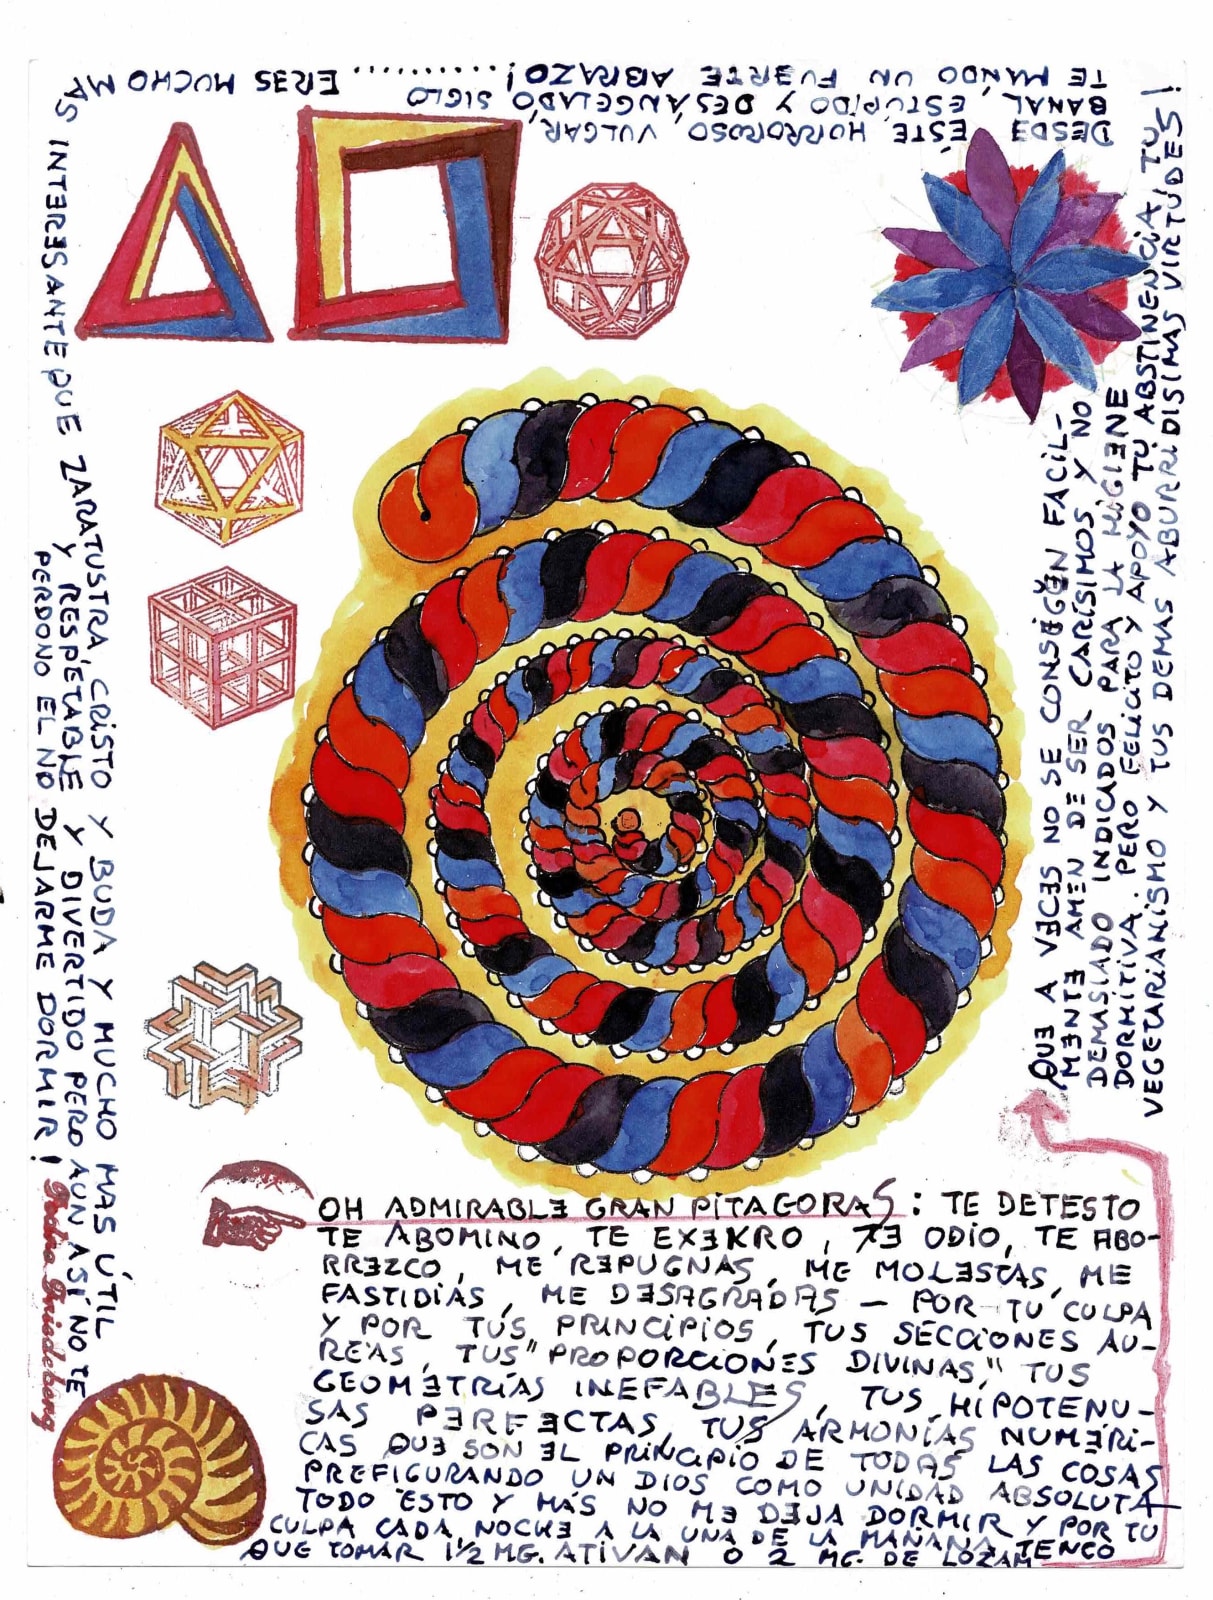 OH ADMIRABLE GRAN PITAGORAS: TE DETESTO
TE ABOMINO, TE EXEKRO, TE ODIO, TE ABO-
RREZCO, ME REPUGNAS, ME MOLESTAS, ME
FASTIDIAS, ME DESAGRADAS — POR TU CULPA
Y POR TUS PRINCIPIOS, TUS SECCIONES AU-
REAS, TUS "PROPORCIONES DIVINAS," TUS
GEOMETRÍAS INEFABLES, TUS HIPOTENU-
SAS PERFECTAS, TUS ARMONÍAS NUMÉRI-
CAS QUE SON EL PRINCIPIO DE TODAS LAS COSAS
PREFIGURANDO UN DIOS COMO UNIDAD ABSOLUTA
TODO ESTO Y MÁS NO ME DEJA DORMIR Y POR TU
CULPA CADA NOCHE A LA UNA DE LA MAÑANA TENGO
QUE TOMAR 1½ MG. ATIVAN O 2 MG. DE LOZAM
QUE A VECES NO SE CONSIGEN FACIL-
MENTE AMEN DE SER CARÍSIMOS Y NO
DEMASIADO INDICADOS PARA LA HIGIENE
DORMITIVA. PERO FELICITO Y APOYO TU ABSTINENCIA, TU
VEGETARIANISMO Y TUS DEMAS ABURRIDISIMAS VIRTUDES!
DESDE ÉSTE HORROROSO, VULGAR,
BANAL, ESTUPIDO Y DESANGELADO SIGLO
TE MANDO UN FUERTE ABRAZO! .......... ERES MUCHO MA
AS INTERESANTE QUE ZARATUSTRA, CRISTO Y BUDA Y MUCHO MAS ÚTIL
Y RESPETABLE Y DIVERTIDO PERO AUN ASÍ NO TE
PERDONO EL NO DEJARME DORMIR!
Pedro Friedeberg